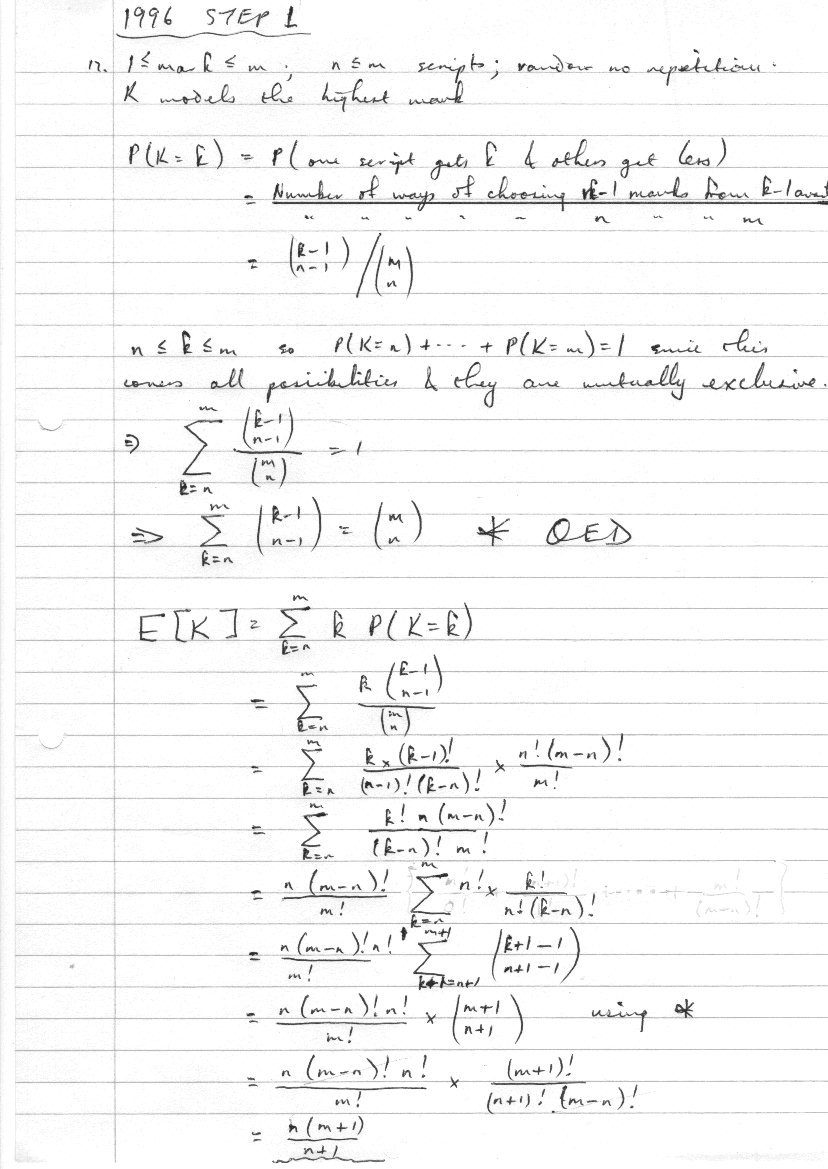 1996 STEP 1
12. 1 ≤ mark ≤ m ; n ≤ m scripts; random no repetitions.
K models the highest mark
P(K = k) = P(one script gets k & others get less)
= Number of ways of choosing n-1 marks from k-1
" " " " " n " " m
= (k-1 n-1) / (m n)
n ≤ k ≤ m so P(K=n) + ··· + P(K=m) = 1 since this
covers all possibilities & they are mutually exclusive.
⇒ ∑_{k=n}^{m} (k-1 n-1) / (m n) = 1
⇒ ∑_{k=n}^{m} (k-1 n-1) = (m n) * QED
E[K] = ∑_{k=n}^{m} k P(K=k)
= ∑_{k=n}^{m} k (k-1 n-1) / (m n)
= ∑_{k=n}^{m} k × (k-1)! / (n-1)! (k-n)! × n! (m-n)! / m!
= ∑_{k=n}^{m} k! n (m-n)! / (k-n)! m!
= n (m-n)! / m! ∑_{k=n}^{m} n! × k! / n! (k-n)!
= n (m-n)! n! / m! ∑_{k+1=n+1}^{m+1} (k+1-1 n+1-1)
= n (m-n)! n! / m! × (m+1 n+1) using *
= n (m-n)! n! / m! × (m+1)! / (n+1)! (m-n)!
= n (m+1) / n+1